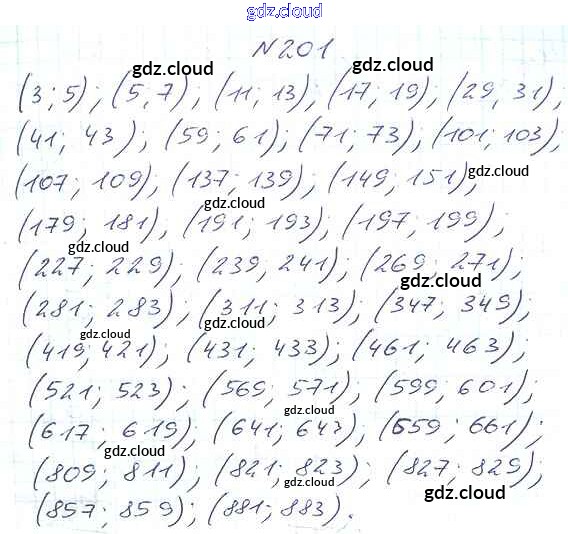 gdz.cloud
N 201
gdz.cloud gdz.cloud
(3; 5); (5, 7); (11; 13); (17; 19); (29, 31);
(41; 43); (59; 61); (71; 73); (101; 103);
gdz.cloud
(107; 109); (137; 139); (149; 151);
(179; 181), (191; 193); (197; 199);
gdz.cloud
(227; 229); (239; 241); (269; 271);
gdz.cloud
(281; 283); (311; 313); (347; 349);
gdz.cloud
gdz.cloud
(419; 421); (431; 433); (461; 463);
(521; 523); (569; 571); (599; 601);
gdz.cloud
(617; 619); (641; 643); (659; 661);
gdz.cloud
(809; 811); (821; 823); (827; 829);
gdz.cloud gdz.cloud
(857; 859); (881; 883).